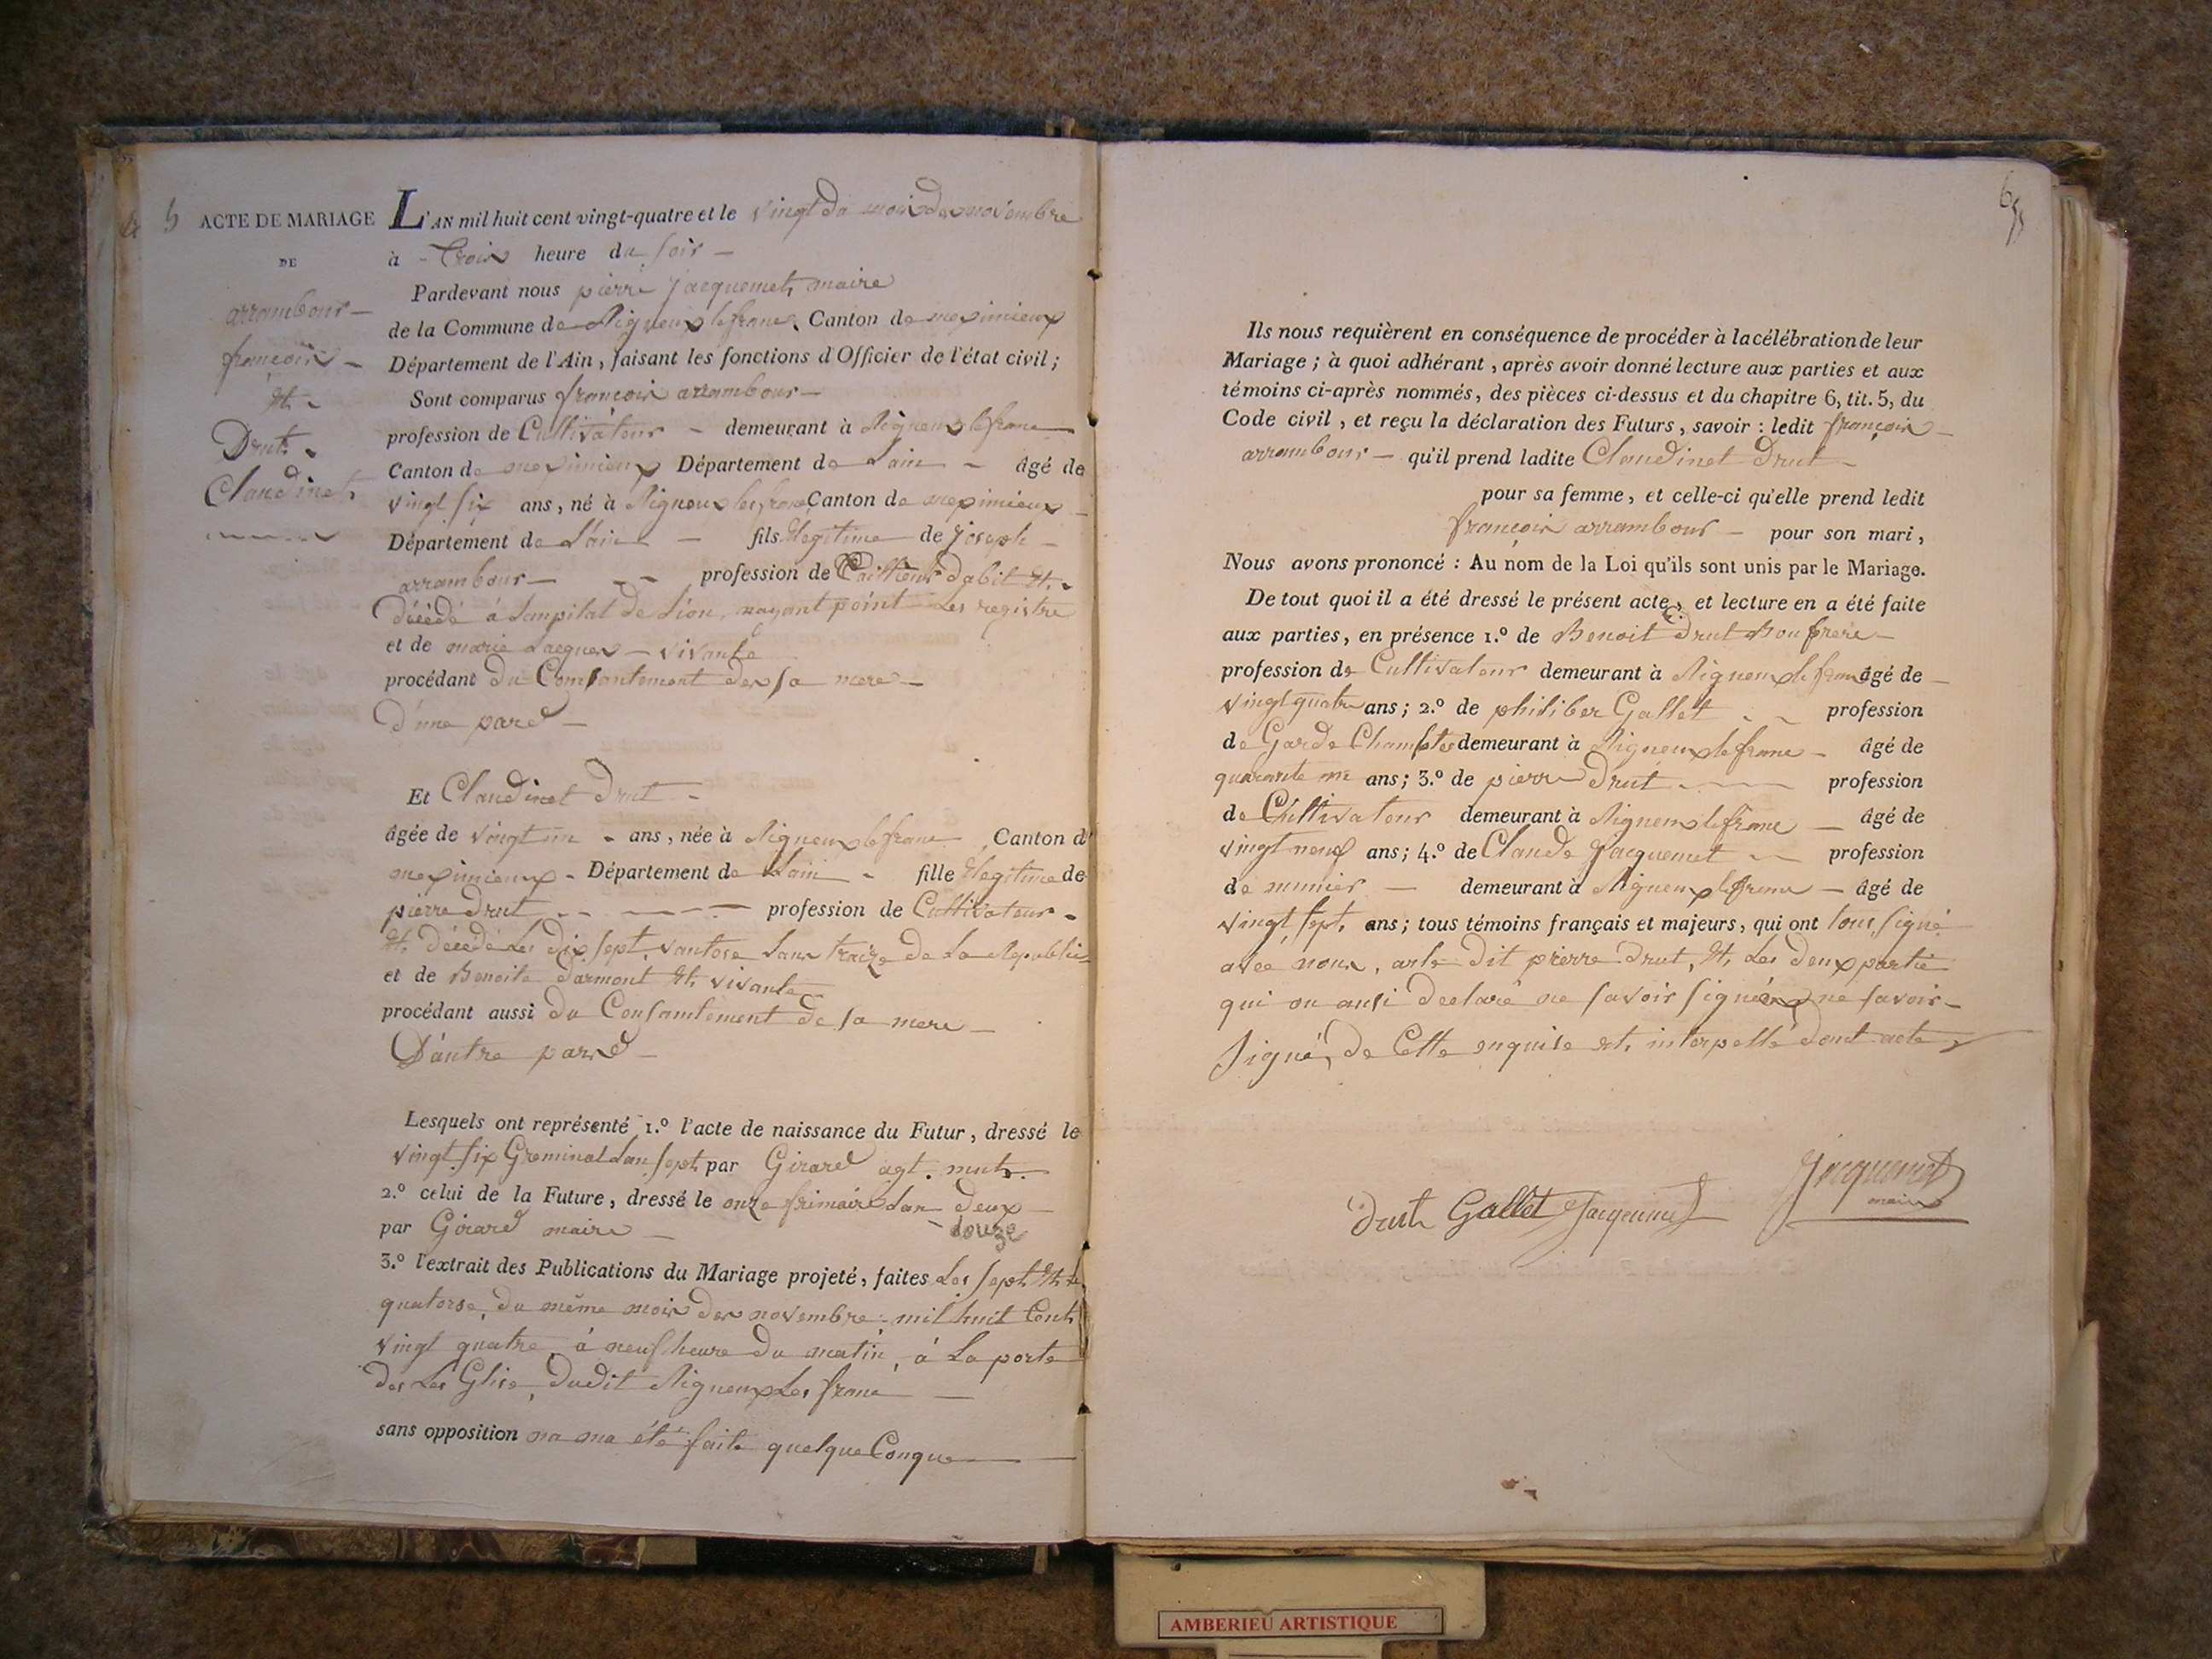 5 ACTE DE MARIAGE
DE
arrambour
françois
Et
Drut
Claudinet
L'AN mil huit cent vingt-quatre et le vingt du mois de novembre
à trois heure du soir
Pardevant nous pierre Jacquemet maire
de la Commune de Rigneux le franc Canton de meximieux
Département de l'Ain, faisant les fonctions d'Officier de l'état civil;
Sont comparus françois arrambour
profession de Cultivateur demeurant à Rigneux le franc
Canton de meximieux Département de Lain âgé de
vingt six ans, né à Rigneux les franc Canton de meximieux
Département de Lain fils Legitime de joseph
arrambour profession de Tailleur dabit Et
décédé à Lanpital de Lion, nayant point Les registre
et de marie Lacques vivante
procédant du Consentement de sa mere
D'une pard
Et Claudinet Drut
âgée de vingt un ans, née à Rigneux le franc Canton d
meximieux Département de Lain fille Legitime de
pierre Drut profession de Cultivateur
Et décédé Les dix sept vantose Lan traize de La Republic
et de Benoite Darmont Et vivante
procédant aussi du Consantement de sa mere
D'autre pard
Lesquels ont représenté 1.º l'acte de naissance du Futur, dressé le
vingt six Greminal Lan sept par Girard agt. mut.
2.º celui de la Future, dressé le onze frimaire Lan deux
par Girard maire douze
3.º l'extrait des Publications du Mariage projeté, faites Les sept Et le
quatorse, du même mois de novembre mil huit Cent
vingt quatre à neuf heure du matin, à La porte
des Les Glise, dudit Rigneux Les franc
sans opposition na na été faite quelque Conque
655
Ils nous requièrent en conséquence de procéder à la célébration de leur
Mariage; à quoi adhérant, après avoir donné lecture aux parties et aux
témoins ci-après nommés, des pièces ci-dessus et du chapitre 6, tit. 5, du
Code civil, et reçu la déclaration des Futurs, savoir: ledit françois
arrambour qu'il prend ladite Claudinet Drut
pour sa femme, et celle-ci qu'elle prend ledit
françois arrambour pour son mari,
Nous avons prononcé: Au nom de la Loi qu'ils sont unis par le Mariage.
De tout quoi il a été dressé le présent acte, et lecture en a été faite
aux parties, en présence 1.º de Benoit Drut Bou frere
profession de Cultivateur demeurant à Rigneux le franc âgé de
vingt quatre ans; 2.º de philiber Gallet profession
de Garde Champter demeurant à Rigneux le franc âgé de
quarante un ans; 3.º de pierre Drut profession
de Cultivateur demeurant à Rigneux le franc âgé de
vingt neuf ans; 4.º de Claude Jacquemet profession
de munier demeurant à Rigneux le franc âgé de
vingt sept ans; tous témoins français et majeurs, qui ont tous signé
avec nous, arls dit pierre Drut, Et Les deux partie
qui on ausi declaré ne savoir signé ne savoir
Signé, de Cette enquise et interpellé dont acte
Jacquemet
maire
Drut Gallet Jacquemet
AMBERIEU ARTISTIQUE